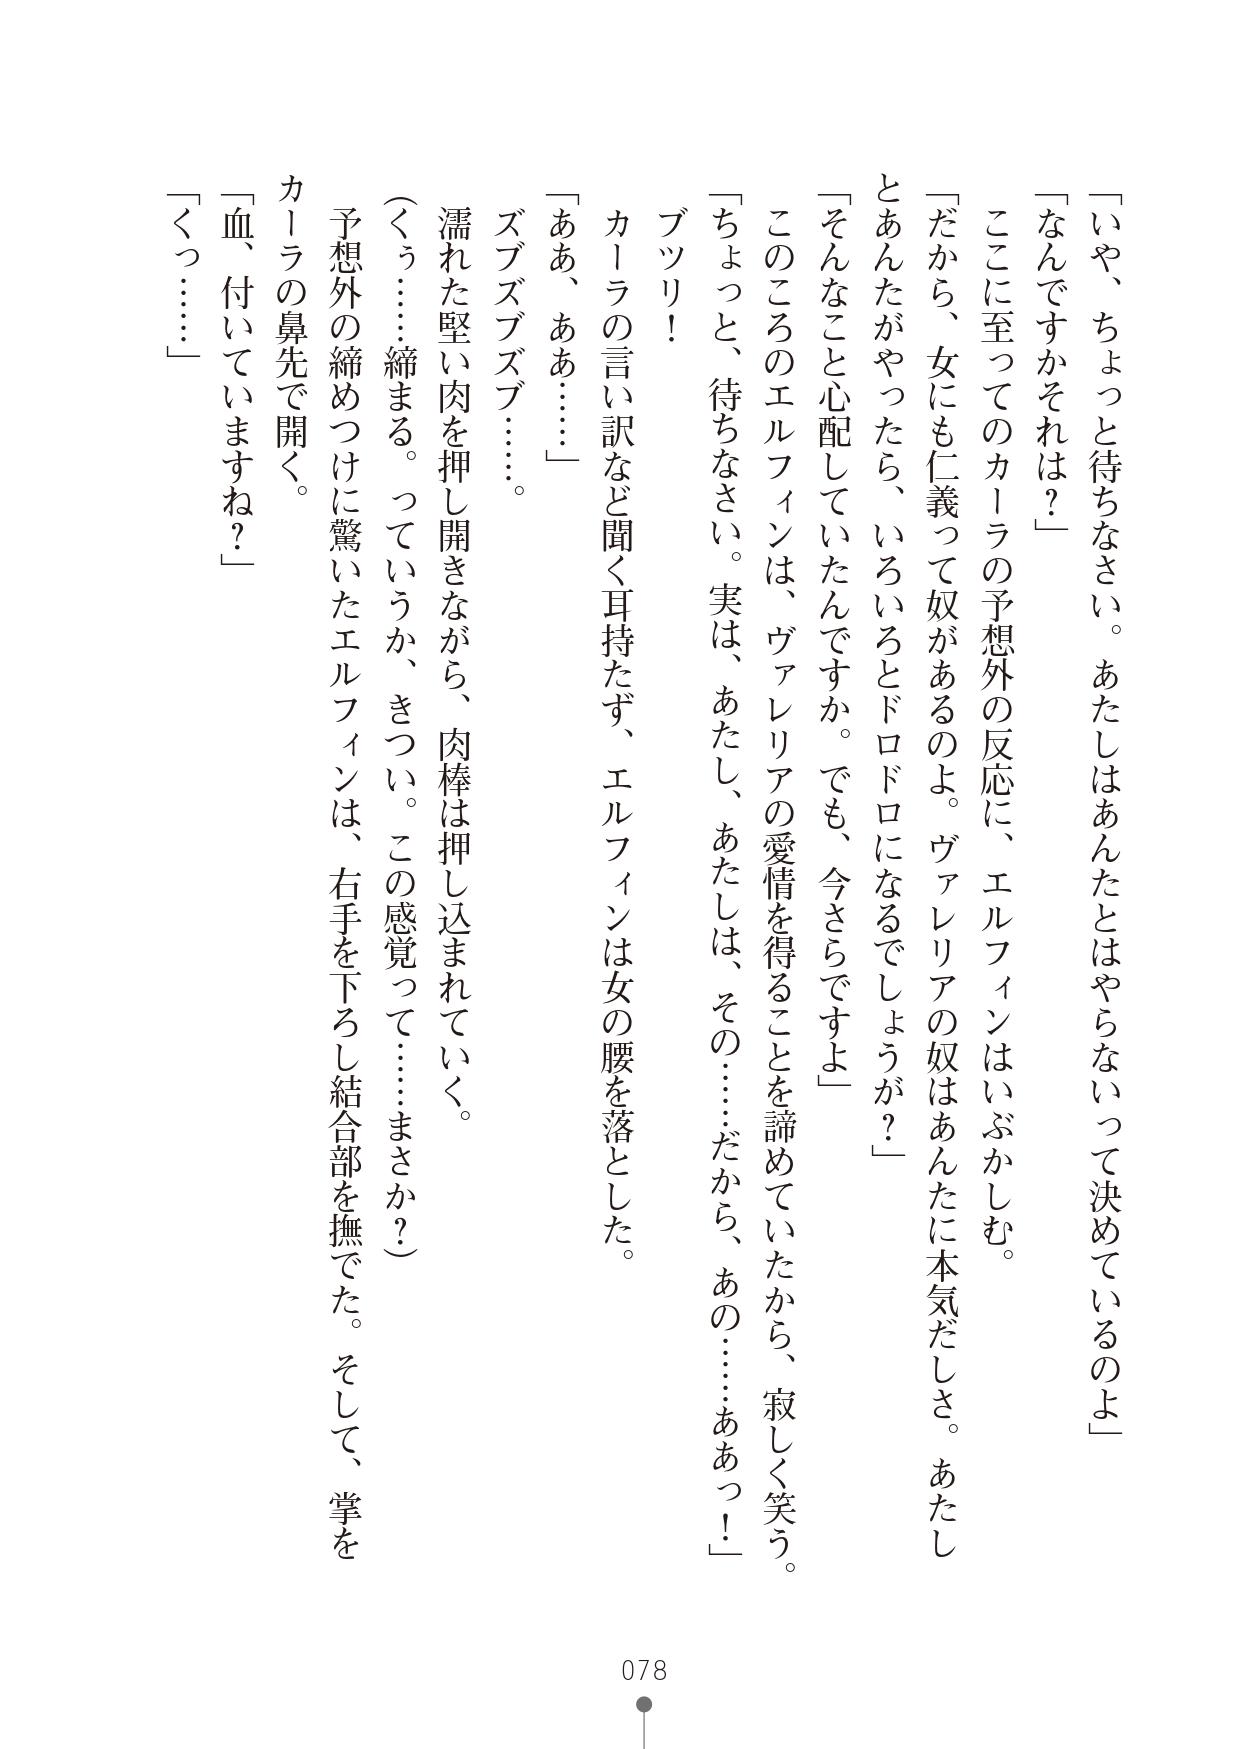 「いや、ちょっと待ちなさい。あたしはあんたとはやらないって決めているのよ」
「なんですかそれは？」
　ここに至ってのカーラの予想外の反応に、エルフィンはいぶかしむ。
「だから、女にも仁義って奴があるのよ。ヴァレリアの奴はあんたに本気だしさ。あたし
とあんたがやったら、いろいろとドロドロになるでしょうが？」
「そんなこと心配していたんですか。でも、今さらですよ」
　このころのエルフィンは、ヴァレリアの愛情を得ることを諦めていたから、寂しく笑う。
「ちょっと、待ちなさい。実は、あたし、あたしは、その……だから、あの……ああっ！」
　ブツリ！
　カーラの言い訳など聞く耳持たず、エルフィンは女の腰を落とした。
「ああ、ああ……」
　ズブズブズブ……。
　濡れた堅い肉を押し開きながら、肉棒は押し込まれていく。
（くぅ……締まる。っていうか、きつい。この感覚って……まさか？）
　予想外の締めつけに驚いたエルフィンは、右手を下ろし結合部を撫でた。そして、掌を
カーラの鼻先で開く。
「血、付いていますね？」
「くっ……」
078